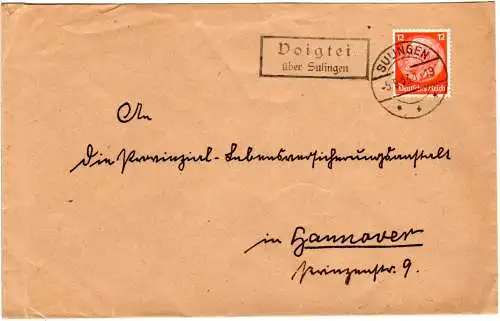 Voigtei
über Sulingen
SULINGEN
12 12
Deutsches Reich
An
die Provinzial-Lebensversicherungsanstalt
in Hannover
Prinzenstr. 9.